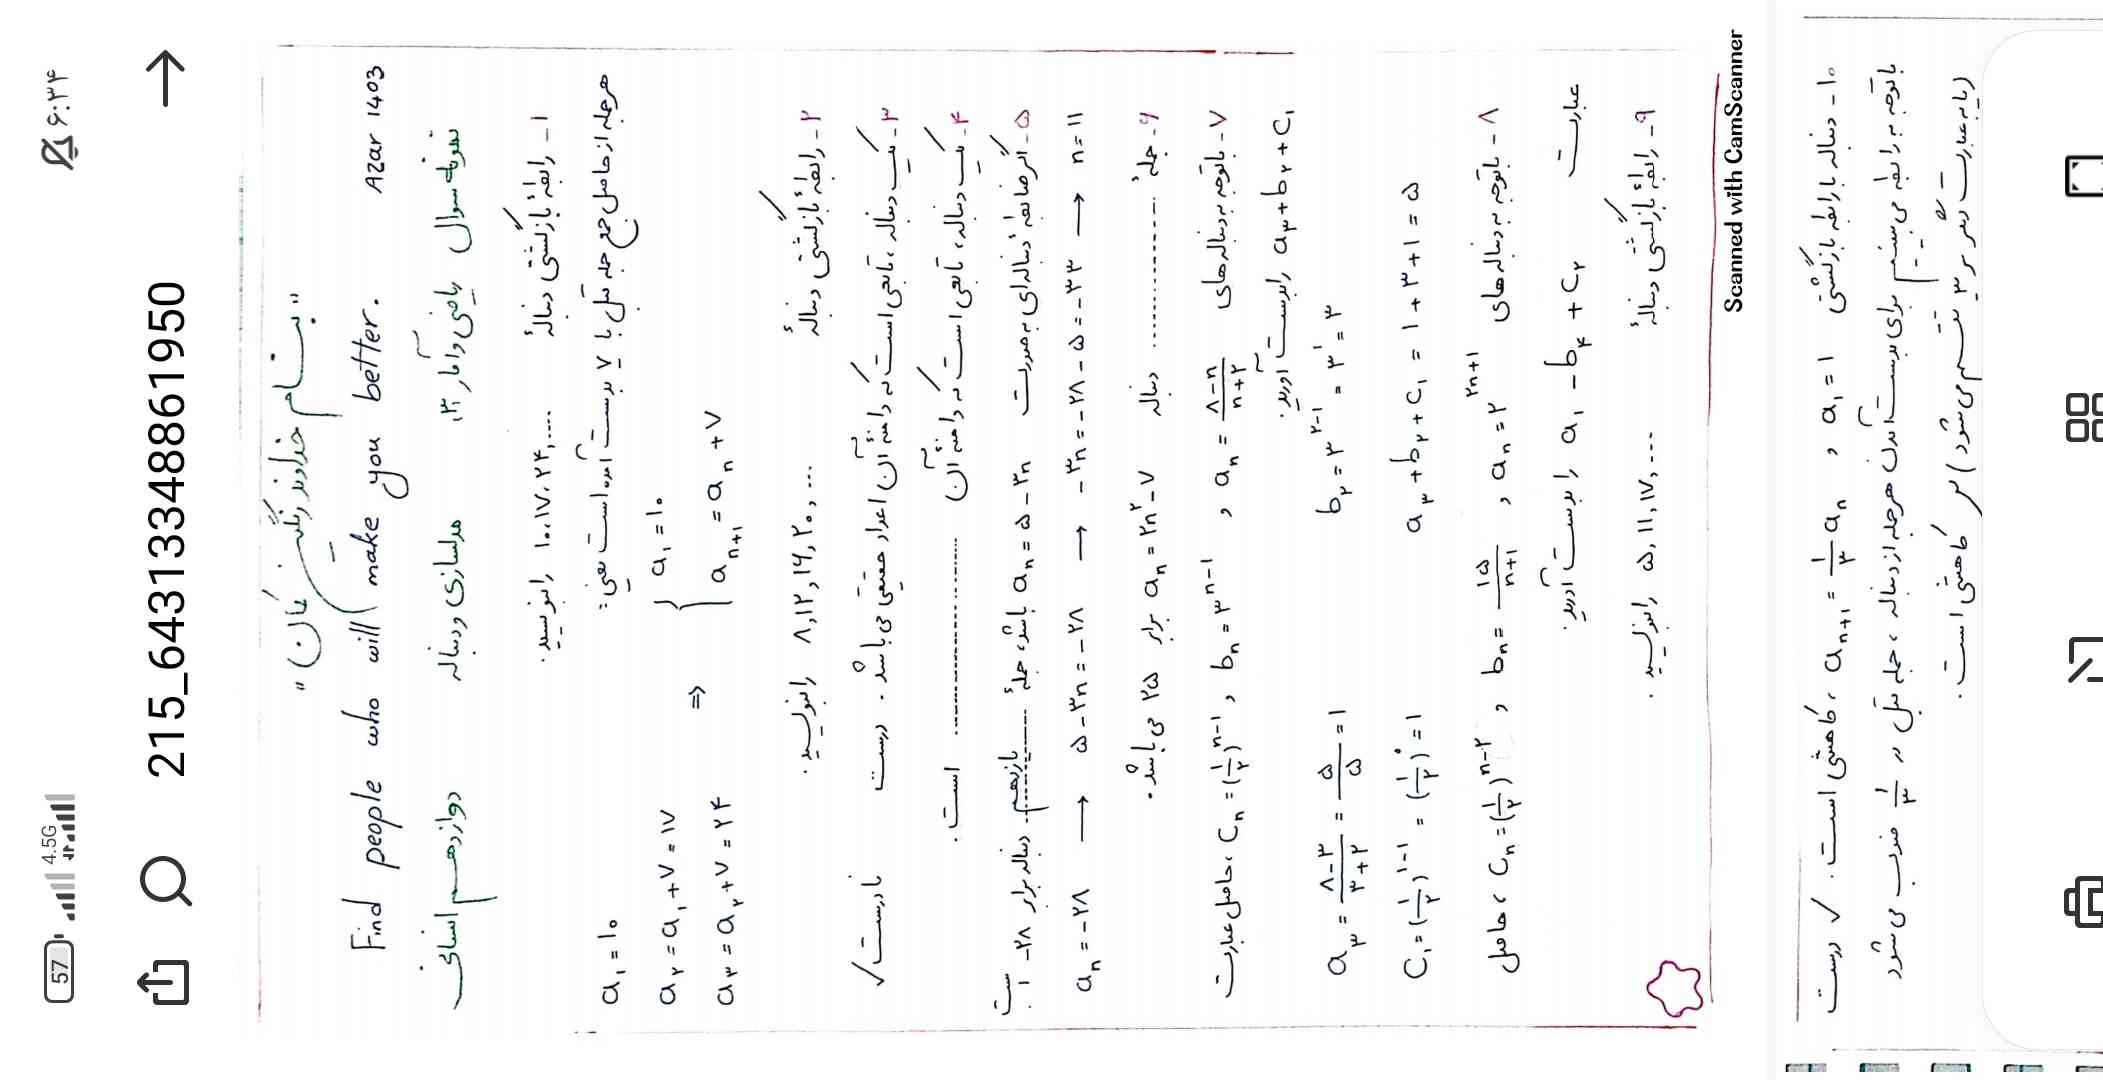 57 4.5G ۶:۳۴
215_6431334886161950
"بنام خداوند رنگین کمان"
Find people who will make you better. Azar 1403
نمونه سوال ریاضی و آمار ۳، مدلسازی و دنباله دوازدهم انسانی
۱- رابطهٔ بازگشتی دنبالهٔ ۱۰,۱۷,۲۴,.... را بنویسید.
هر جمله از حاصل جمع جمله قبل با ۷ بدست آمده است یعنی:
a₁=۱۰
a₂=a₁+۷=۱۷
a₃=a₂+۷=۲۴
⇒ { a₁=۱۰
aₙ₊₁=aₙ+۷
۲- رابطهٔ بازگشتی دنبالهٔ ۸,۱۲,۱۶,۲۰,... را بنویسید.
۳- یک دنباله، تابعی است که دامنهٔ آن اعداد حقیقی می باشد. درست نادرست ✓
۴- یک دنباله، تابعی است که دامنهٔ آن .................... است.
۵- اگر ضابطهٔ دنباله‌ای به صورت aₙ=۵-۳n باشد، جملهٔ ...یازدهم... دنباله برابر ۲۸- است.
aₙ=-۲۸ → ۵-۳n=-۲۸ → -۳n=-۲۸-۵=-۳۳ → n=۱۱
۶- جملهٔ ............... دنباله aₙ=۲n²-۷ برابر ۲۵ می باشد.
۷- با توجه به دنباله‌های aₙ=(۸-n)/(n+۲) , bₙ=۳ⁿ⁻¹ , Cₙ=(۱/۲)ⁿ⁻¹، حاصل عبارت
a₃+b₂+C₁ را بدست آورید.
a₃=(۸-۳)/(۳+۲)=۵/۵=۱ b₂=۳²⁻¹=۳¹=۳
C₁=(۱/۲)¹⁻¹=(۱/۲)⁰=۱ a₃+b₂+C₁=۱+۳+۱=۵
۸- با توجه به دنباله‌های aₙ=۲²ⁿ⁺¹ , bₙ=۱۵/(n+۱) , Cₙ=(۱/۲)ⁿ⁻²، حاصل
عبارت a₁-b₄+C₂ را بدست آورید.
۹- رابطهٔ بازگشتی دنبالهٔ ۵,۱۱,۱۷,... را بنویسید.
Scanned with CamScanner
۱۰- دنباله با رابطه بازگشتی a₁=۱ , aₙ₊₁=۱/۳ aₙ، کاهشی است. ✓ درست
با توجه به رابطه می بینیم برای بدست آوردن هر جمله از دنباله، جمله قبل در ۱/۳ ضرب می شود
(یا به عبارت دیگر بر ۳ تقسیم می شود) پس کاهشی است.